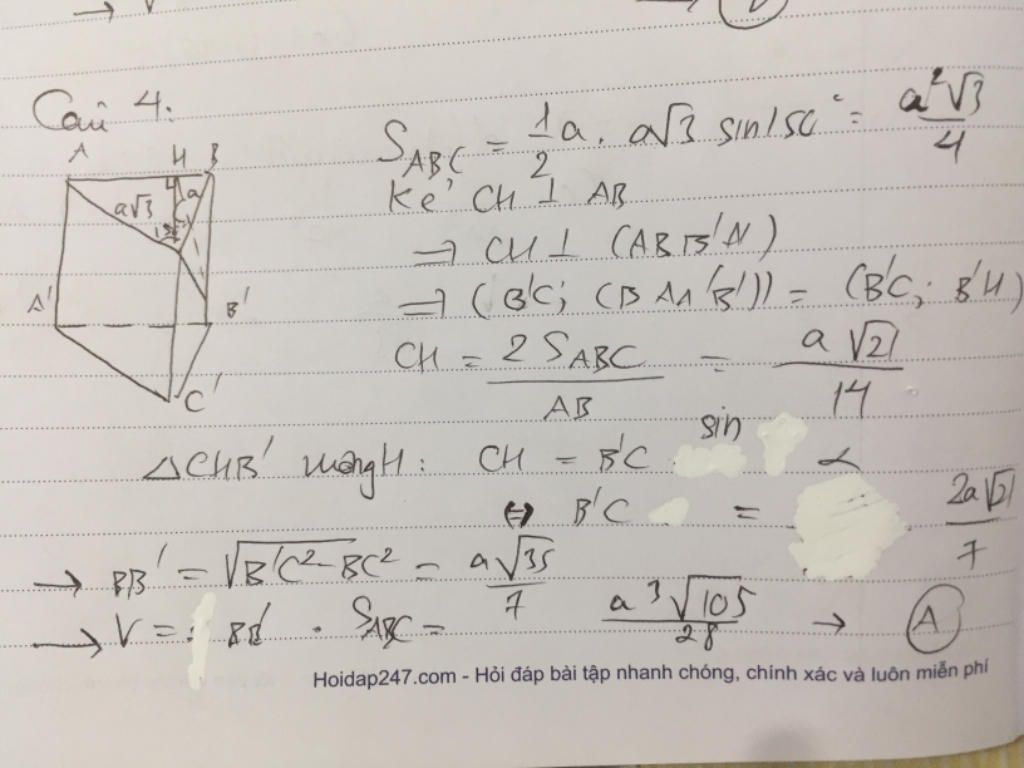 Câu 4:
A H B
a√3 a
A' B'
C'
S_ABC = 1/2 a. a√3 sin150° = a²√3/4
Kẻ CH ⊥ AB
⇒ CH ⊥ (ABB'A')
⇒ (B'C; (BAA'B')) = (B'C; B'H)
CH = 2S_ABC/AB = a√21/14
△CHB' vuông H: CH = B'C sin α
⇔ B'C = 2a√21/7
→ BB' = √(B'C² - BC²) = a√35/7
→ V = BB' . S_ABC = a³√105/28 → A
Hoidap247.com - Hỏi đáp bài tập nhanh chóng, chính xác và luôn miễn phí